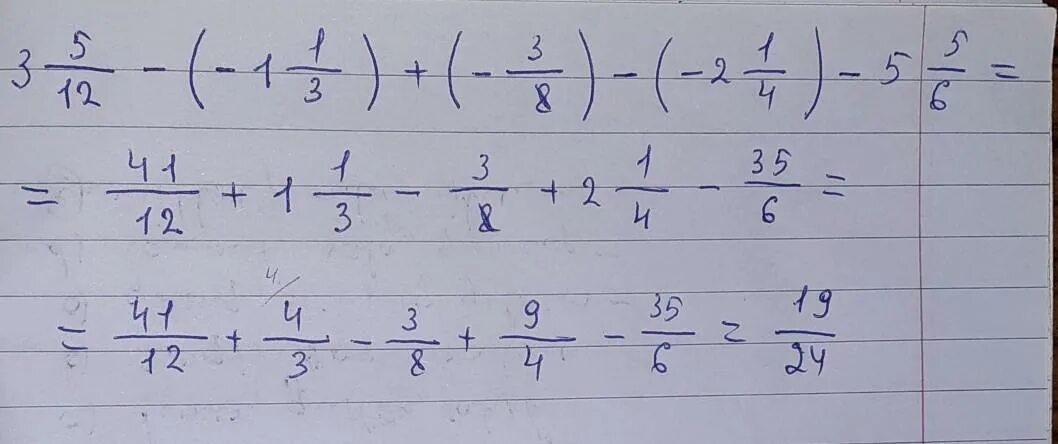 3 5/12 - (-1 1/3) + (-3/8) - (-2 1/4) - 5 5/6 =
= 41/12 + 1 1/3 - 3/8 + 2 1/4 - 35/6 =
4/
= 41/12 + 4/3 - 3/8 + 9/4 - 35/6 = 19/24